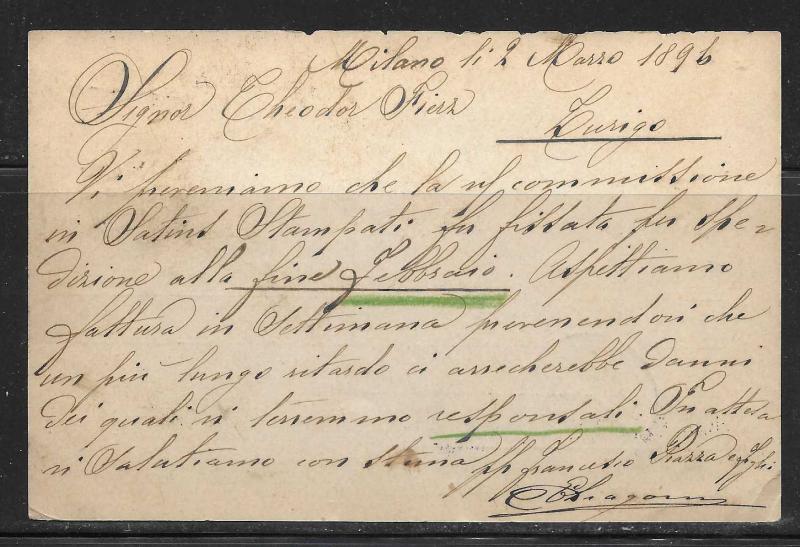 Milano li 2 Marzo 1896
Signor Theodor Fierz
Zurigo
Vi preveniamo che la vs/ commissione
in Satins Stampati fu fissata per spe-
dizione alla fine Febbraio. Aspettiamo
fattura in settimana prevenendovi che
un più lungo ritardo ci arrecherebbe danni
dei quali vi terremmo responsali. In attesa
vi salutiamo con stima pp Francesco Piazza e figli